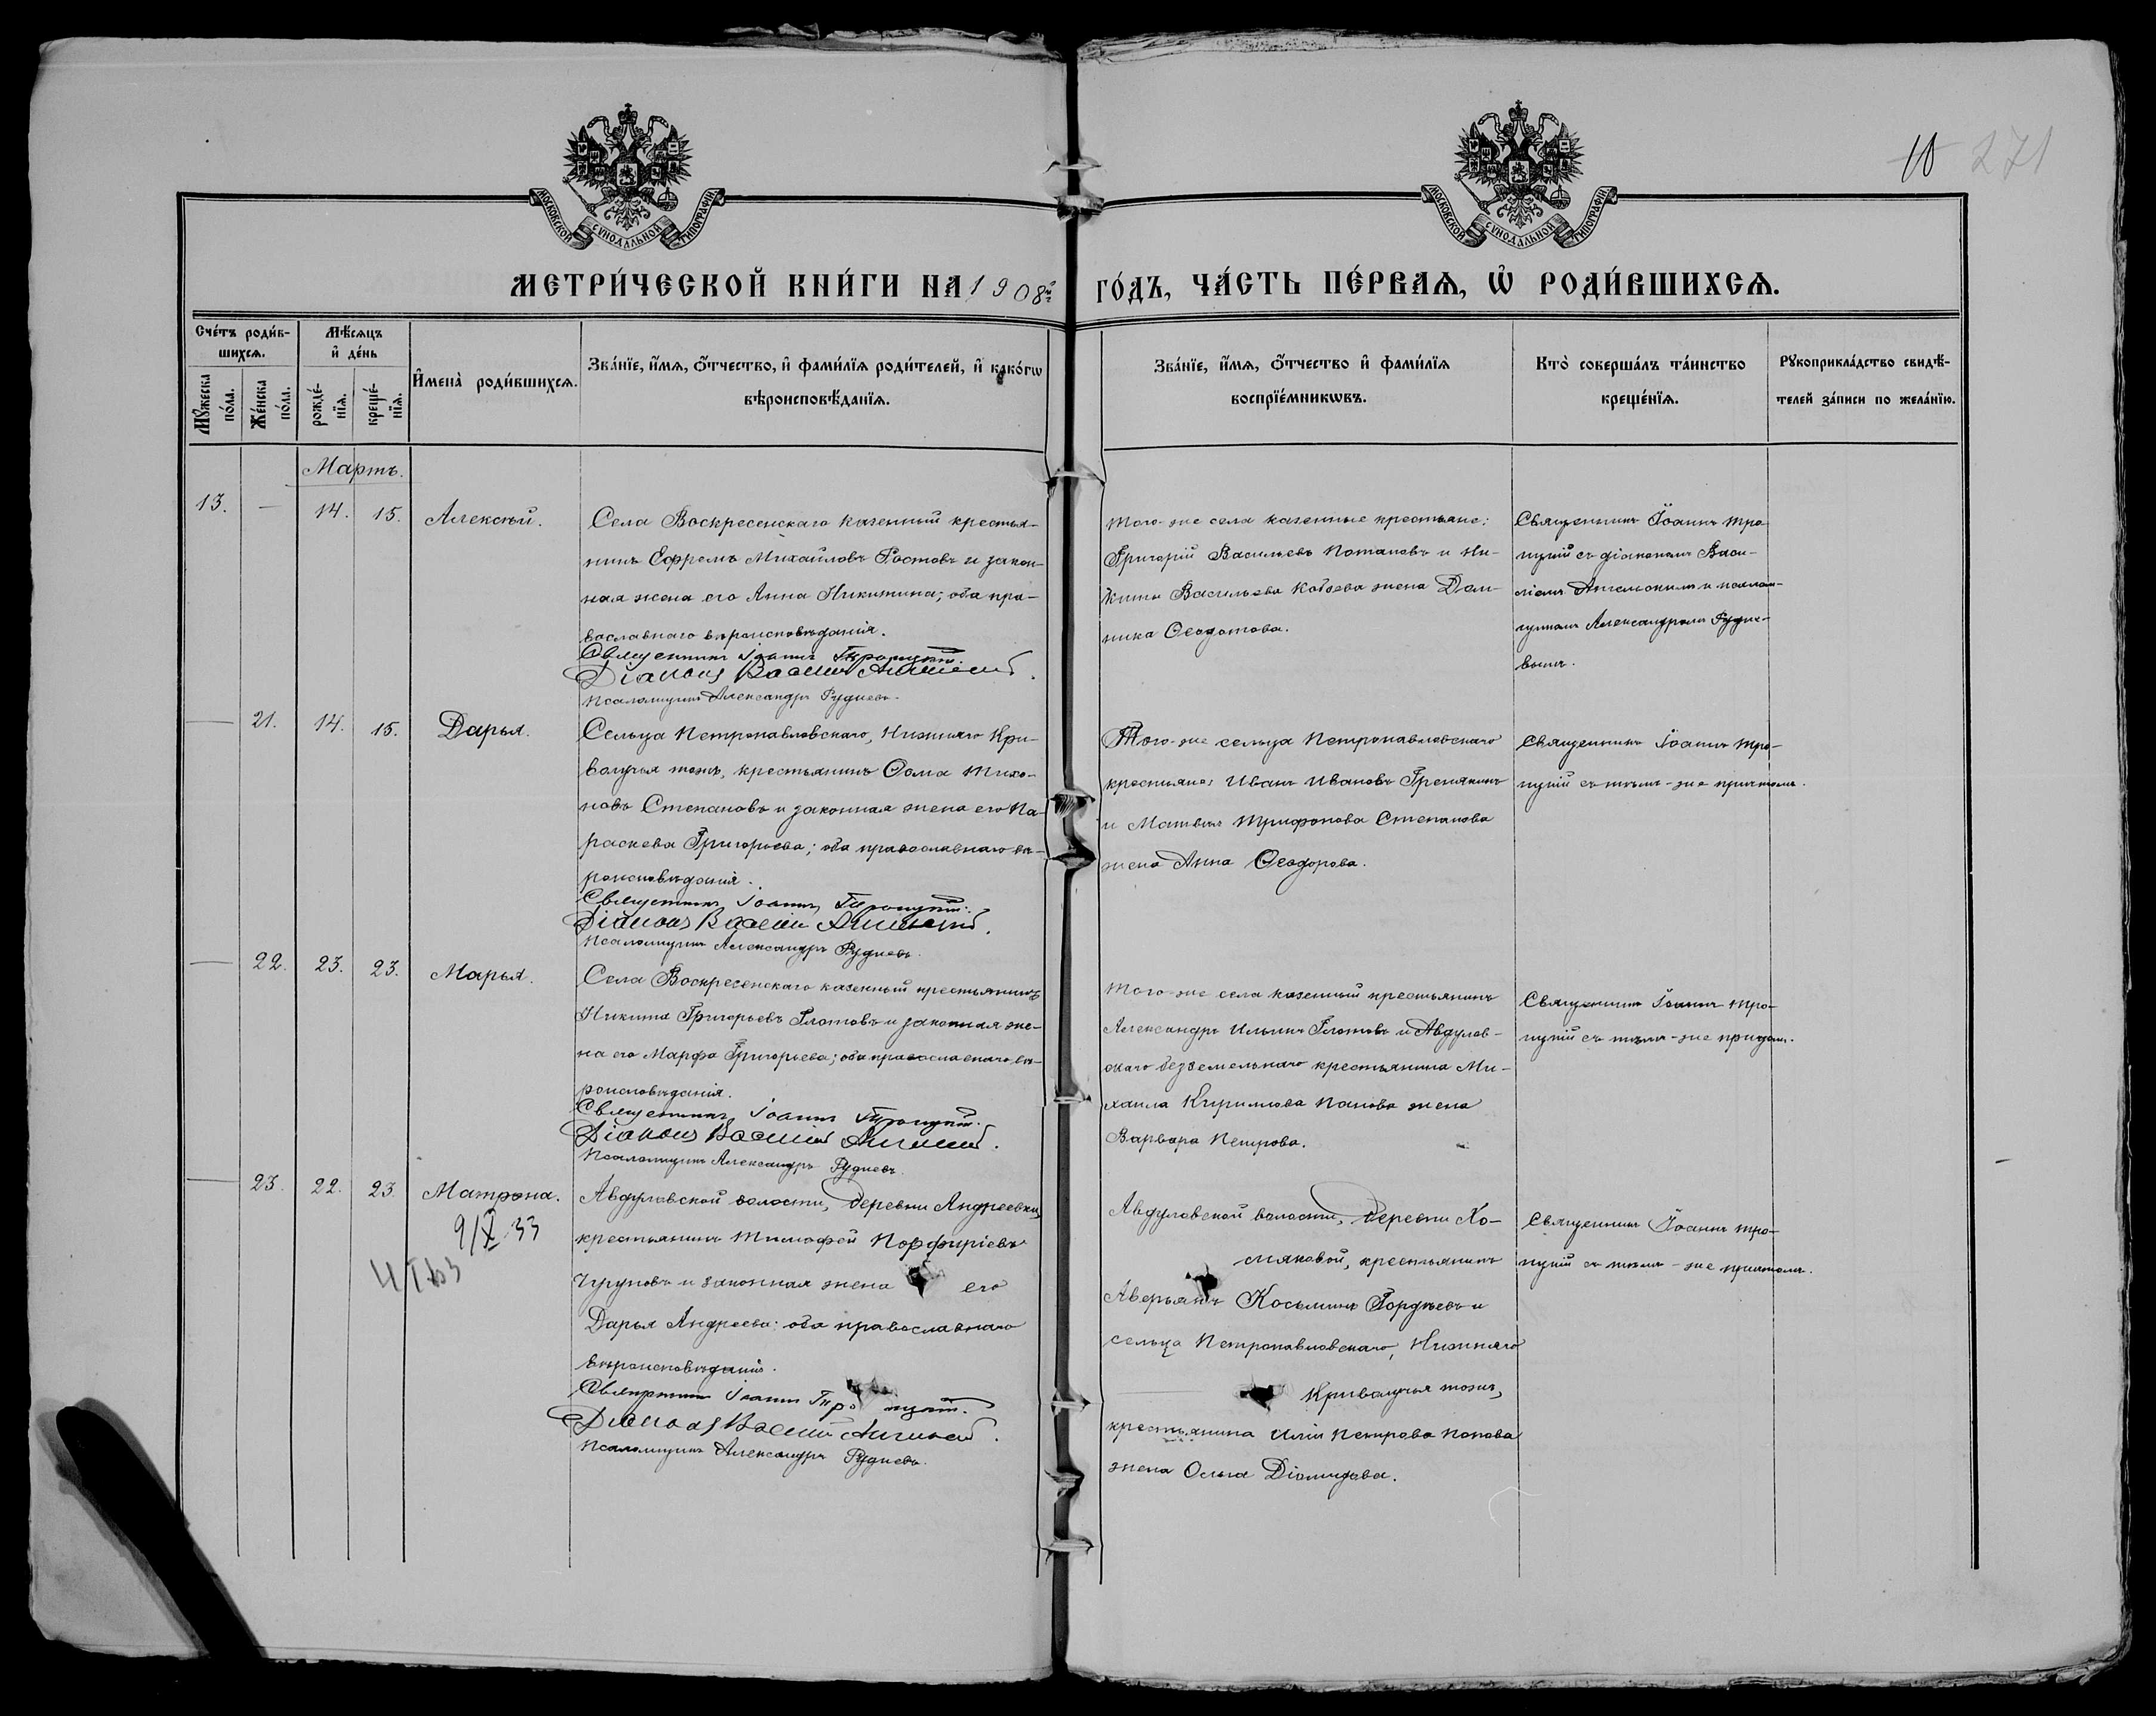 10 271
МОСКОВСКОЙ СУНОДАЛЬНОЙ ТИПОГРАФІИ
МОСКОВСКОЙ СУНОДАЛЬНОЙ ТИПОГРАФІИ
МЕТРИ́ЧЕСКОЙ КНИ́ГИ НА 1908й ГО́ДЪ, ЧА́СТЬ ПЕ́РВАѦ, Ѡ҆ РОДИ́ВШИХСѦ.
Сче́тъ роди́в-
шихсѧ.
Мѣ́сѧцъ
и҆ де́нь
Мꙋ́жеска
по́ла.
Же́нска
по́ла.
рожде́-
нїѧ.
креще́-
нїѧ.
И҆мена̀ роди́вшихсѧ.
Зва́нїе, и҆́мѧ, ѻ҆́тчество, и҆ фами́лїѧ роди́телей, и҆ како́гѡ
вѣроисповѣ́данїѧ.
Зва́нїе, и҆́мѧ, ѻ҆́тчество и҆ фами́лїѧ
воспрїе́мникѡвъ.
Кто̀ соверша́лъ та́инство
креще́нїѧ.
Рꙋкоприкла́дство свидѣ́-
телей за́писи по жела́нїю.
Мартъ.
13. — 14. 15. Алексѣй.
Села Воскресенскаго казенный крестья-
нинъ Ефремъ Михайловъ Ростовъ и закон-
ная жена его Анна Никитина; оба пра-
вославнаго вѣроисповѣданія.
Священникъ Іоаннъ Троицкій.
Діаконъ Василій
Псаломщикъ Александръ Рудневъ.
Того-же села казенные крестьяне:
Григорій Васильевъ Потаповъ и Ни-
киты Васильева Кобзева жена Дом-
ника Ѳеодотова.
Священникъ Іоаннъ Тро-
ицкій съ діакономъ Васи-
ліемъ и псалом-
щикомъ Александромъ Рудне-
вымъ.
— 21. 14. 15. Дарья.
Сельца Петропавловскаго, Нижняго Кри-
волучья тожъ, крестьянинъ Ѳома Тихо-
новъ Степановъ и законная жена его Па-
раскева Григорьева; оба православнаго вѣ-
роисповѣданія.
Священникъ Іоаннъ Троицкій.
Діаконъ Василій
Псаломщикъ Александръ Рудневъ.
Того-же сельца Петропавловскаго
крестьяне: Иванъ Ивановъ Гренякинъ
и Матвѣя Трифонова Степанова
жена Анна Ѳеодорова.
Священникъ Іоаннъ Тро-
ицкій съ тѣмъ-же причтомъ.
— 22. 23. 23. Марья.
Села Воскресенскаго казенный крестьянинъ
Никита Григорьевъ Глотовъ и законная же-
на его Марфа Григорьева; оба православнаго вѣ-
роисповѣданія.
Священникъ Іоаннъ Троицкій.
Діаконъ Василій
Псаломщикъ Александръ Рудневъ.
Того-же села казенный крестьянинъ
Александръ Ильинъ Глотовъ и Авдулов-
скаго безземельнаго крестьянина Ми-
хаила Кириллова Попова жена
Варвара Петрова.
Священникъ Іоаннъ Тро-
ицкій съ тѣмъ-же причтомъ.
— 23. 22. 23. Матрона.
9/X 33
Авдуловской волости, деревни Андреевки,
крестьянинъ Тимофей Порфиріевъ
Чуруновъ и законная жена его
Дарья Андреева; оба православнаго
вѣроисповѣданія.
Священникъ Іоаннъ Троицкій.
Діаконъ Василій
Псаломщикъ Александръ Рудневъ.
Авдуловской волости, деревни Хо-
мяковой, крестьянинъ
Аверьянъ Косьминъ Гордѣевъ и
сельца Петропавловскаго, Нижняго
Криволучья тожъ,
крестьянина Иліи Петрова Попова
жена Ольга Діомидова.
Священникъ Іоаннъ Тро-
ицкій съ тѣмъ-же причтомъ.